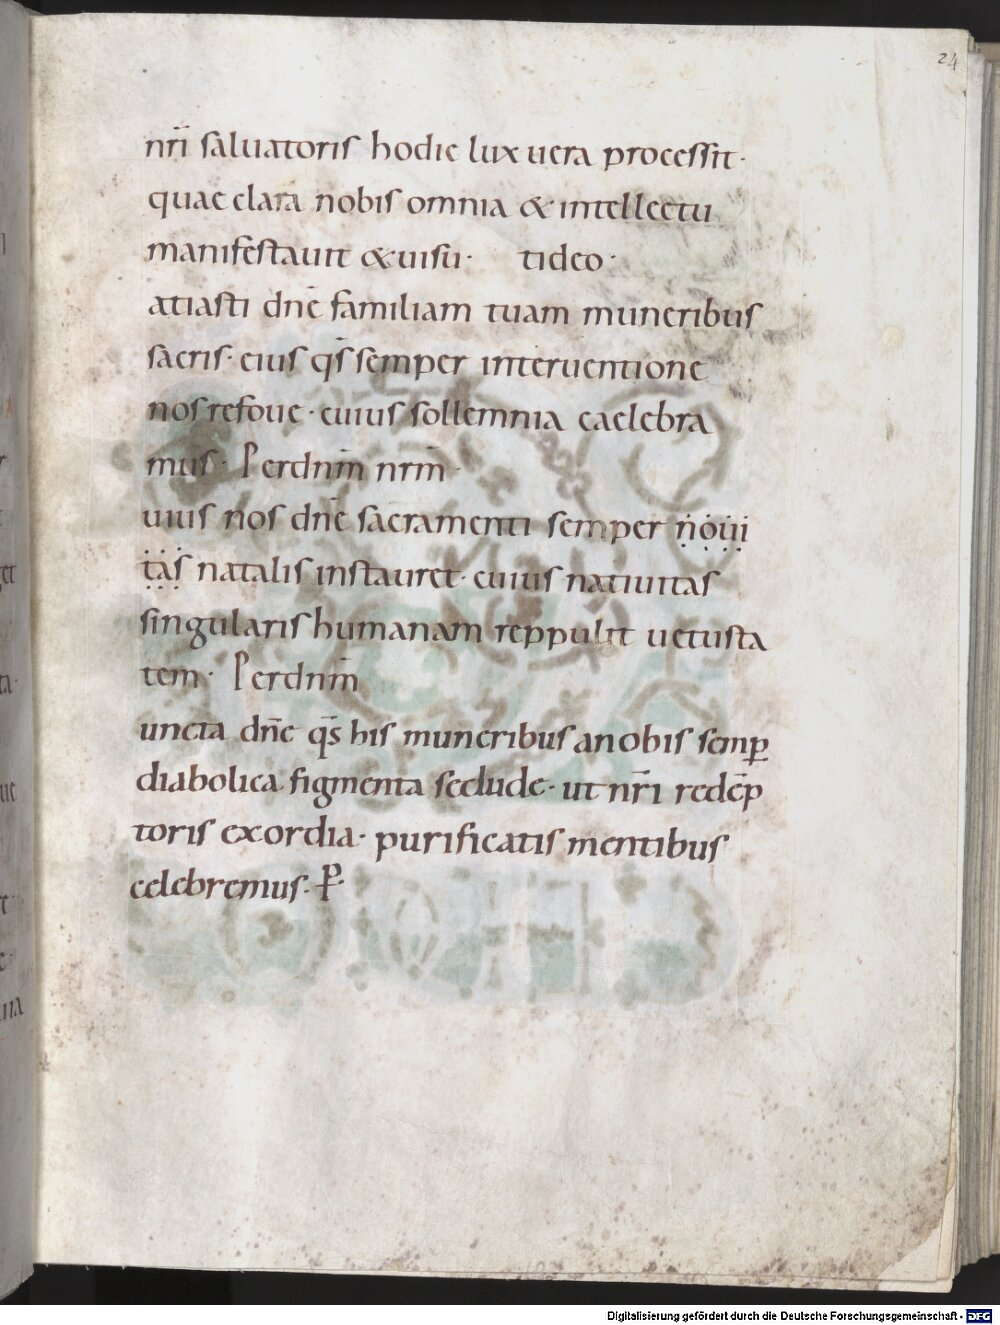 24
nr̄i saluatoris hodie lux uera processit·
quae clara nobis omnia & intellectu
manifestauit & uisu· tideo·
atiasti dn̄e familiam tuam muneribus
sacris· eius qs̄ semper interuentione
nos refoue· cuius sollemnia caelebra
mus· Perdnm̄ nrm̄·
uius nos dn̄e sacramenti semper ṇọụị
ṭạṣ natalis instauret· cuius natiuitas
singularis humanam reppulit uetusta
tem· Perdnm̄
uncta dn̄e qs̄ his muneribus anobis semp̲
diabolica figmenta seclude· ut nr̄i redēp
toris exordia· purificatis mentibus
celebremus· P̄·
Digitalisierung gefördert durch die Deutsche Forschungsgemeinschaft - DFG